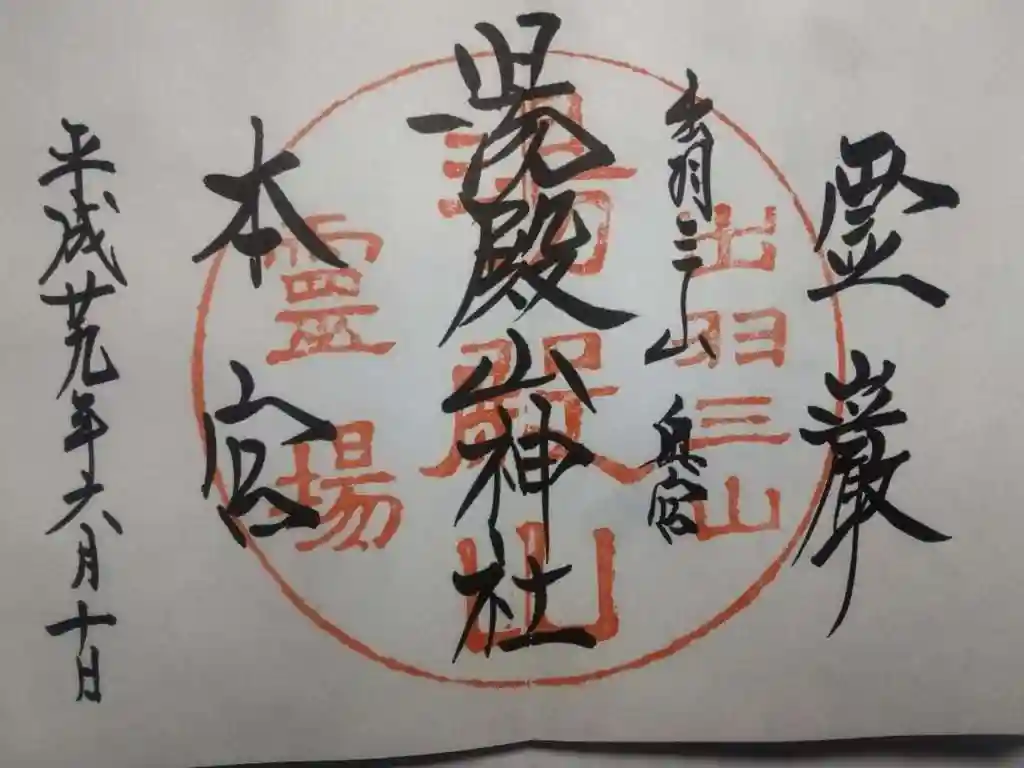 霊巌
出羽三山奥宮
湯殿山神社
本宮
平成廿九年六月十日
出羽三山
湯殿山
霊場